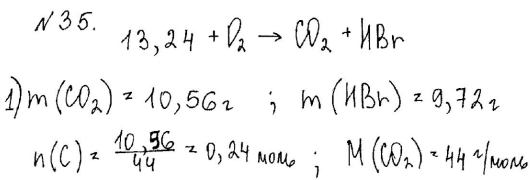 №35.
13,24 + O₂ → CO₂ + HBr
1) m(CO₂) = 10,56 г ; m(HBr) = 9,72 г
n(C) = 10,56/44 = 0,24 моль ; M(CO₂) = 44 г/моль